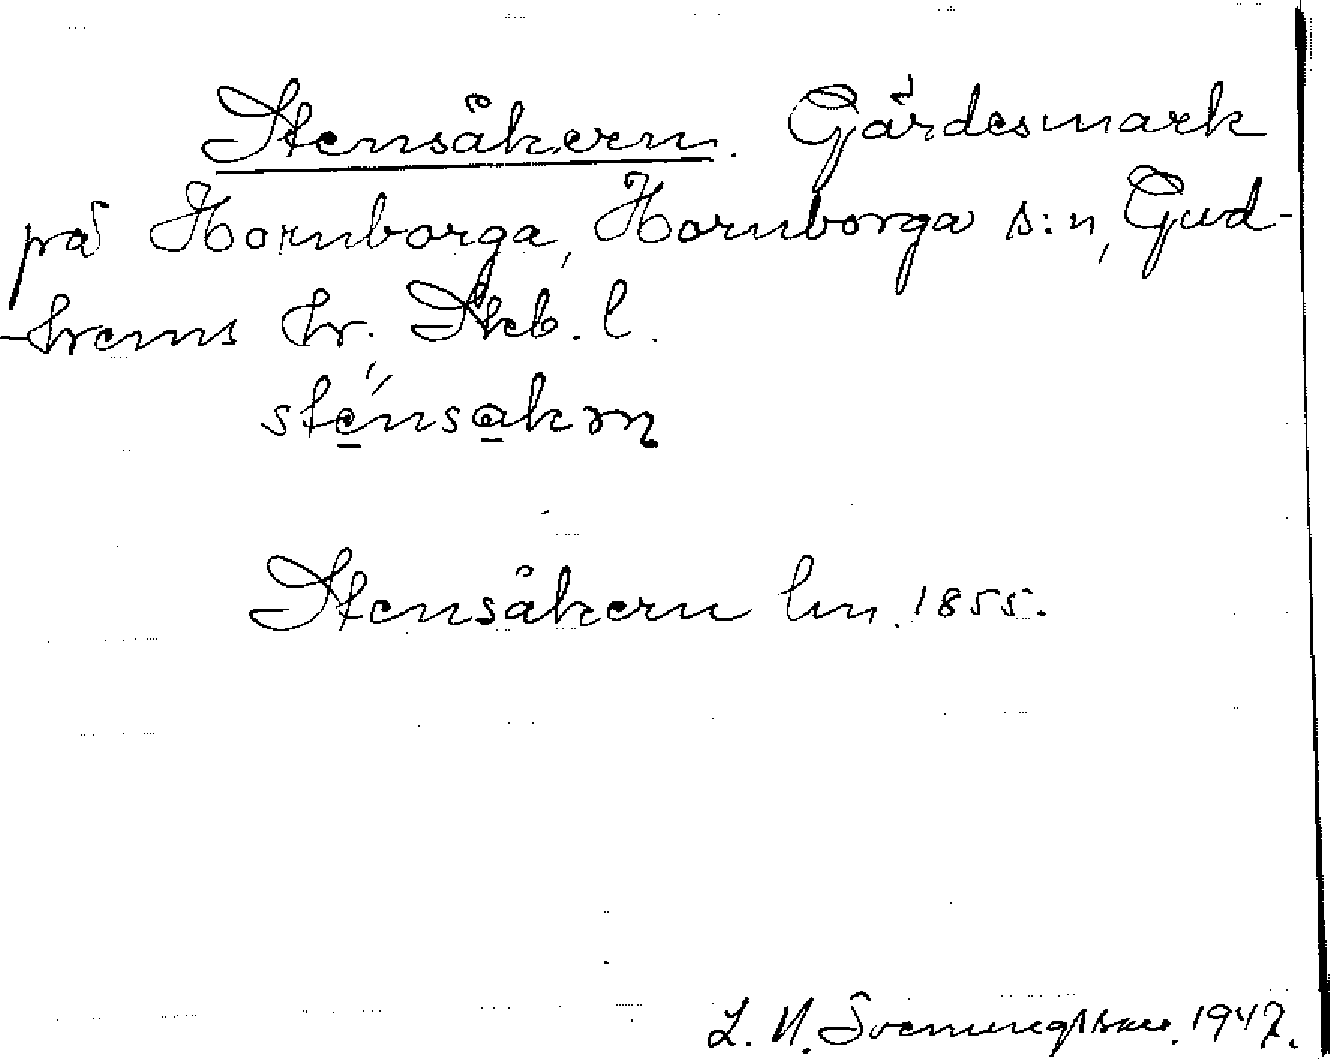 Stensåkern. Gärdesmark
på Hornborga, Hornborga s:n, Gud-
hems hr. Skb. l.
sténsakrn
Stensåkern lm. 1855.
L. N. Svenungsson. 1947.